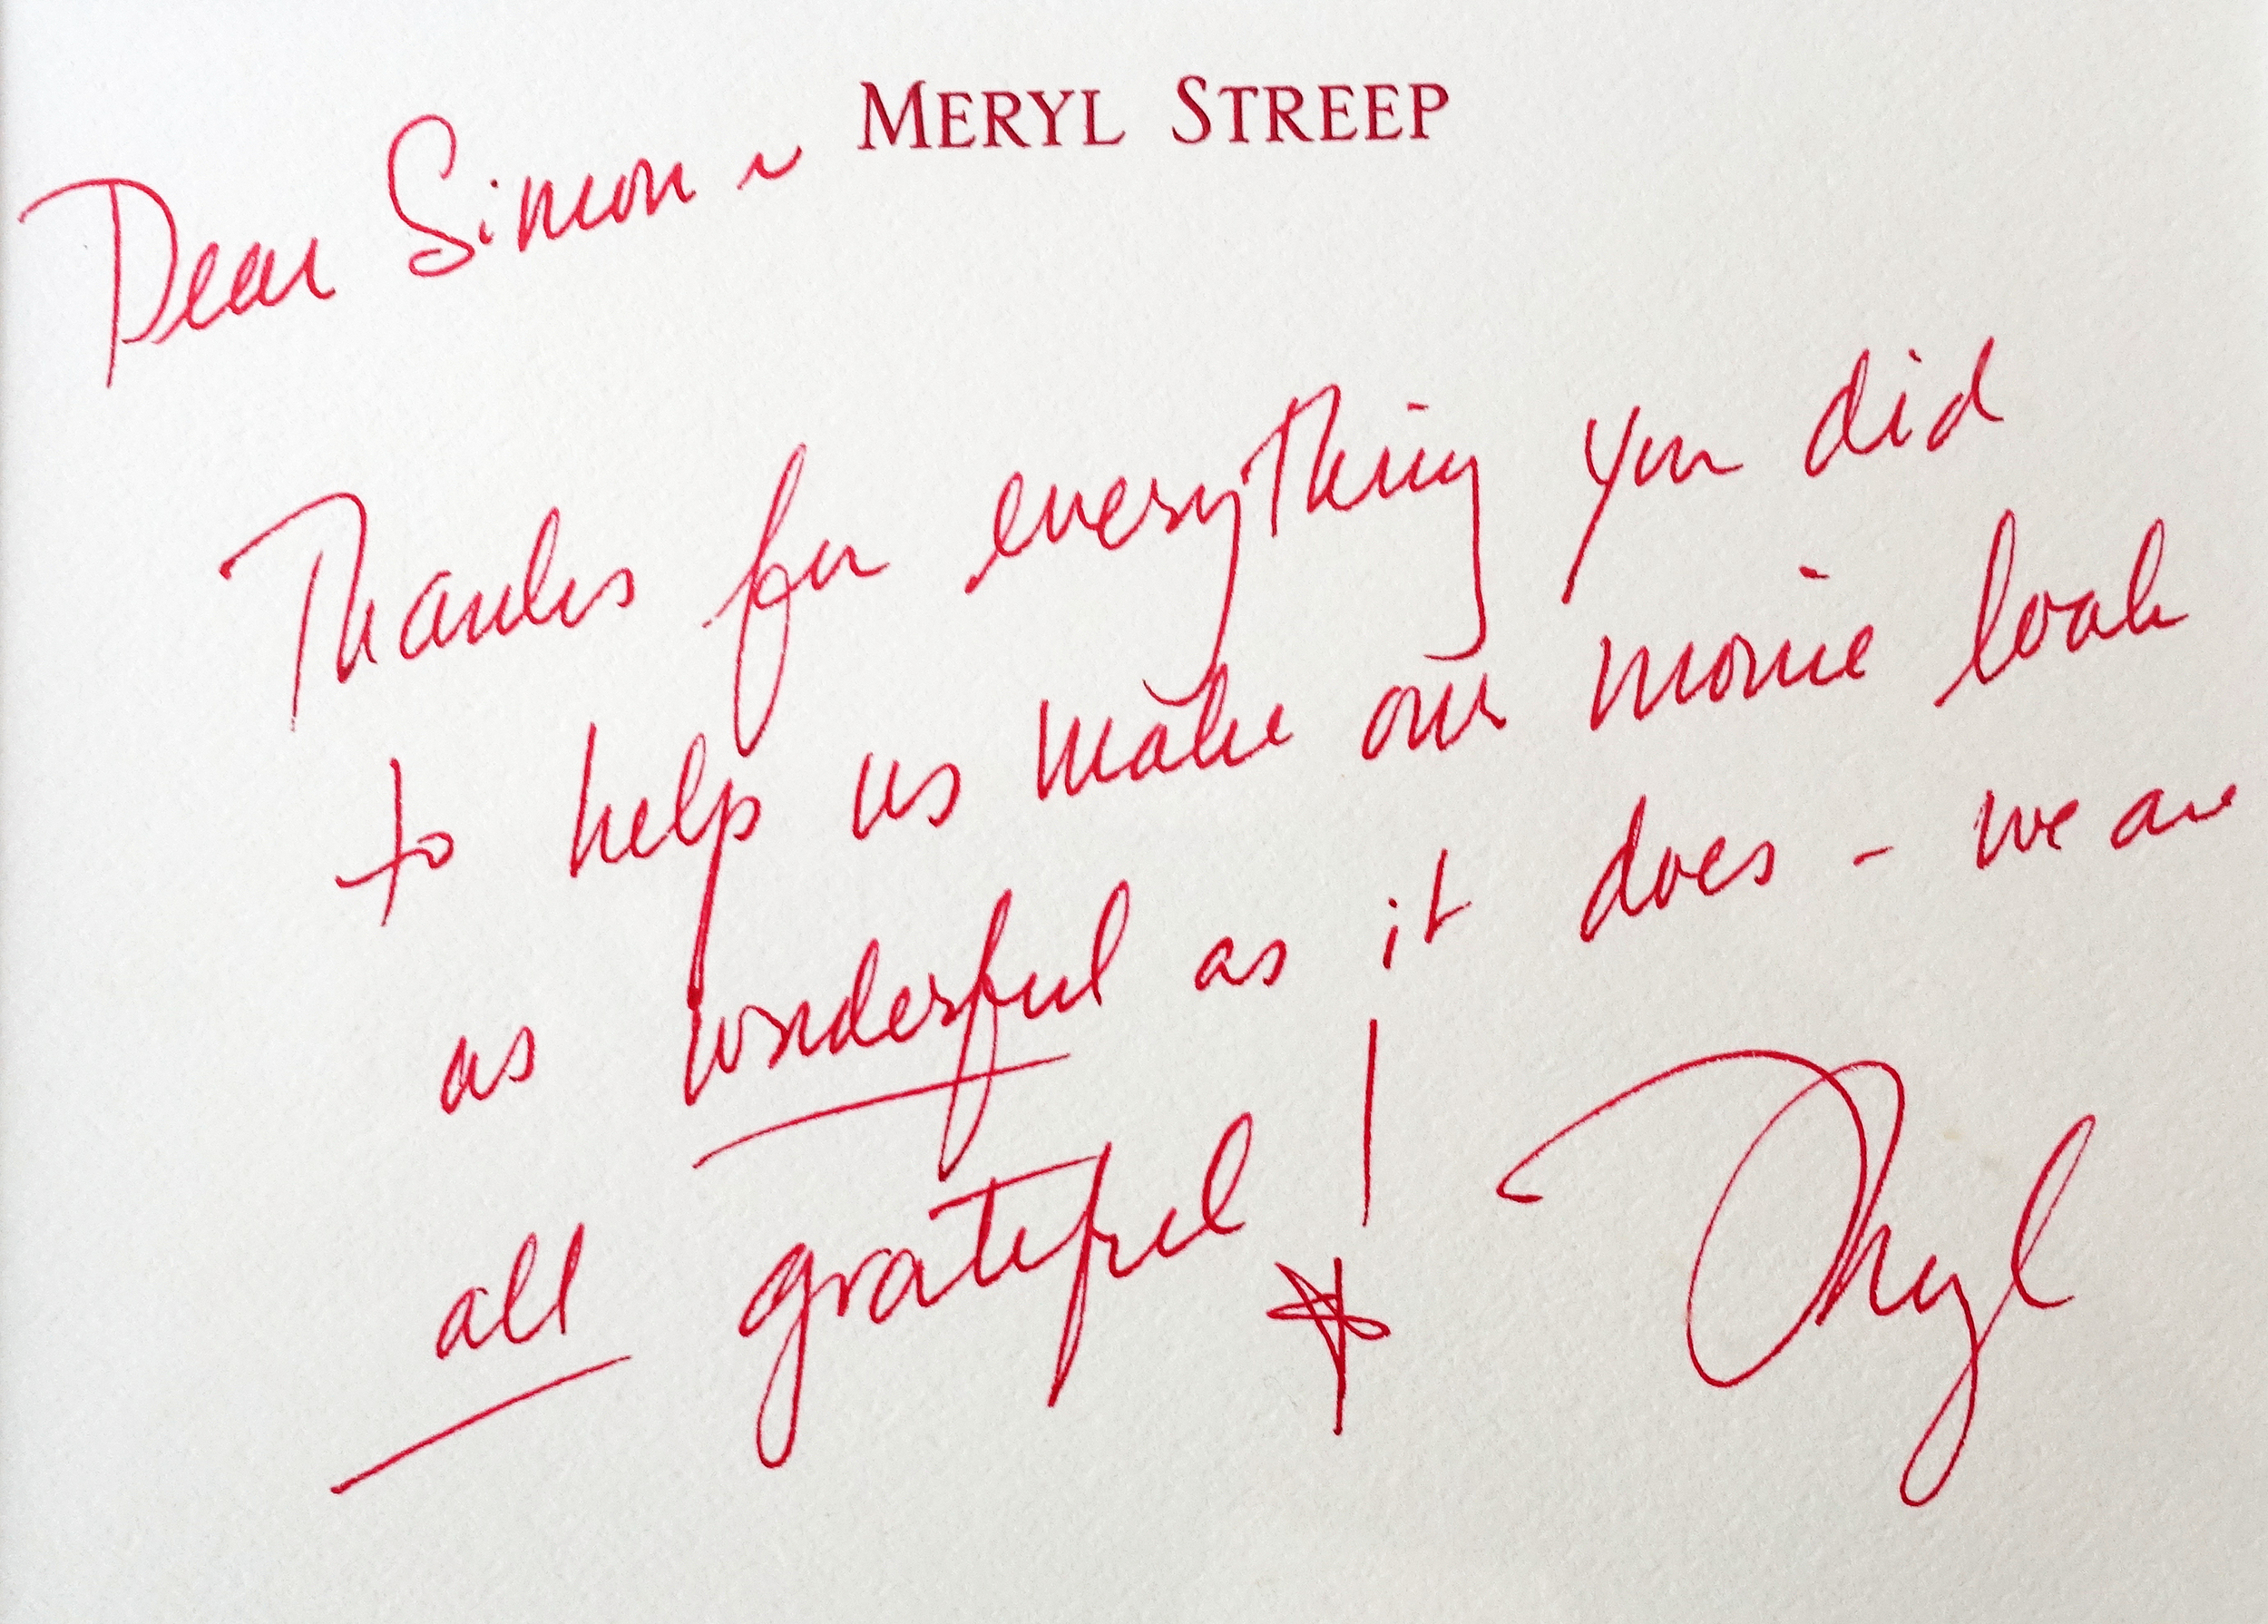 MERYL STREEP
Dear Simon ~
Thanks for everything you did
to help us make our movie look
as wonderful as it does - we are
all grateful!
Meryl